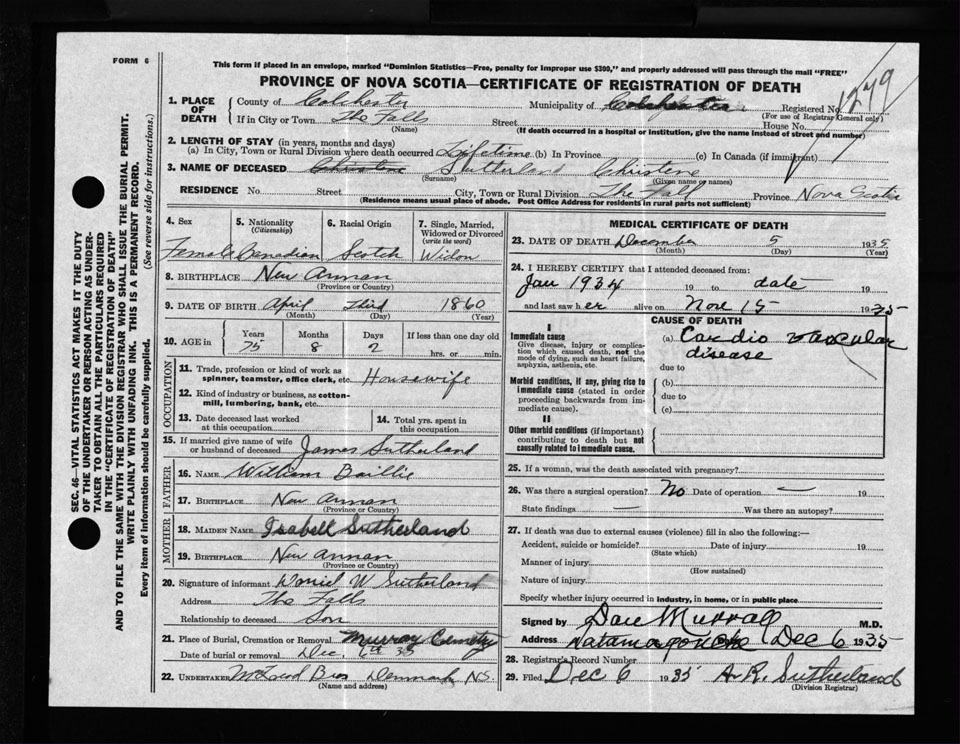 FORM 6
This form if placed in an envelope, marked "Dominion Statistics—Free, penalty for improper use $300," and properly addressed will pass through the mail "FREE"
PROVINCE OF NOVA SCOTIA—CERTIFICATE OF REGISTRATION OF DEATH
1. PLACE OF DEATH County of Colchester Municipality of Colchester Registered No. 1279
(For use of Registrar General only)
If in City or Town The Falls Street House No.
(Name) (If death occurred in a hospital or institution, give the name instead of street and number)
2. LENGTH OF STAY (in years, months and days)
(a) In City, Town or Rural Division where death occurred Lifetime (b) In Province (c) In Canada (if immigrant)
3. NAME OF DECEASED Christene Sutherland Christene
(Surname) (Given name or names)
RESIDENCE No. Street City, Town or Rural Division The Fall Province Nova Scotia
(Residence means usual place of abode. Post Office Address for residents in rural parts not sufficient)
4. Sex 5. Nationality (Citizenship) 6. Racial Origin 7. Single, Married, Widowed or Divorced (write the word)
Female Canadian Scotch Widow
8. BIRTHPLACE New Annan
(Province or Country)
9. DATE OF BIRTH April third 1860
(Month) (Day) (Year)
10. AGE in Years Months Days If less than one day old
75 8 2 hrs. or min.
OCCUPATION
11. Trade, profession or kind of work as spinner, teamster, office clerk, etc. Housewife
12. Kind of industry or business, as cotton-mill, lumbering, bank, etc.
13. Date deceased last worked at this occupation 14. Total yrs. spent in this occupation
15. If married give name of wife or husband of deceased James Sutherland
FATHER
16. NAME William Baillie
17. BIRTHPLACE New Annan
(Province or Country)
MOTHER
18. MAIDEN NAME Isabell Sutherland
19. BIRTHPLACE New Annan
(Province or Country)
20. Signature of informant Daniel W Sutherland
Address The Falls
Relationship to deceased Son
21. Place of Burial, Cremation or Removal Murray Cemetry
Date of burial or removal Dec. 6th 35
22. UNDERTAKER McLeod Bros Denmark N.S.
(Name and address)
MEDICAL CERTIFICATE OF DEATH
23. DATE OF DEATH December 5 1935
(Month) (Day) (Year)
24. I HEREBY CERTIFY that I attended deceased from:
Jan 1934 19 to date 19
and last saw her alive on Nov 15 1935
CAUSE OF DEATH
I
Immediate cause
Give disease, injury or complication which caused death, not the mode of dying, such as heart failure, asphyxia, asthenia, etc.
(a) Cardio vascular
disease
due to
Morbid conditions, if any, giving rise to immediate cause (stated in order proceeding backwards from immediate cause).
(b)
due to
(c)
II
Other morbid conditions (if important) contributing to death but not causally related to immediate cause.
25. If a woman, was the death associated with pregnancy?
26. Was there a surgical operation? No Date of operation — 19
State findings — Was there an autopsy?
27. If death was due to external causes (violence) fill in also the following:—
Accident, suicide or homicide? Date of injury 19
(State which)
Manner of injury
(How sustained)
Nature of injury
Specify whether injury occurred in industry, in home, or in public place
Signed by Dan Murray M.D.
Address Tatamagouche Dec 6 1935
28. Registrar's Record Number
29. Filed Dec 6 1935 A. R. Sutherland
(Division Registrar)
SEC. 46—VITAL STATISTICS ACT MAKES IT THE DUTY
OF THE UNDERTAKER OR PERSON ACTING AS UNDER-
TAKER TO OBTAIN ALL THE PARTICULARS REQUIRED
IN THE "CERTIFICATE OF REGISTRATION OF DEATH"
AND TO FILE THE SAME WITH THE DIVISION REGISTRAR WHO SHALL ISSUE THE BURIAL PERMIT.
WRITE PLAINLY WITH UNFADING INK. THIS IS A PERMANENT RECORD.
Every item of information should be carefully supplied. (See reverse side for instructions.)